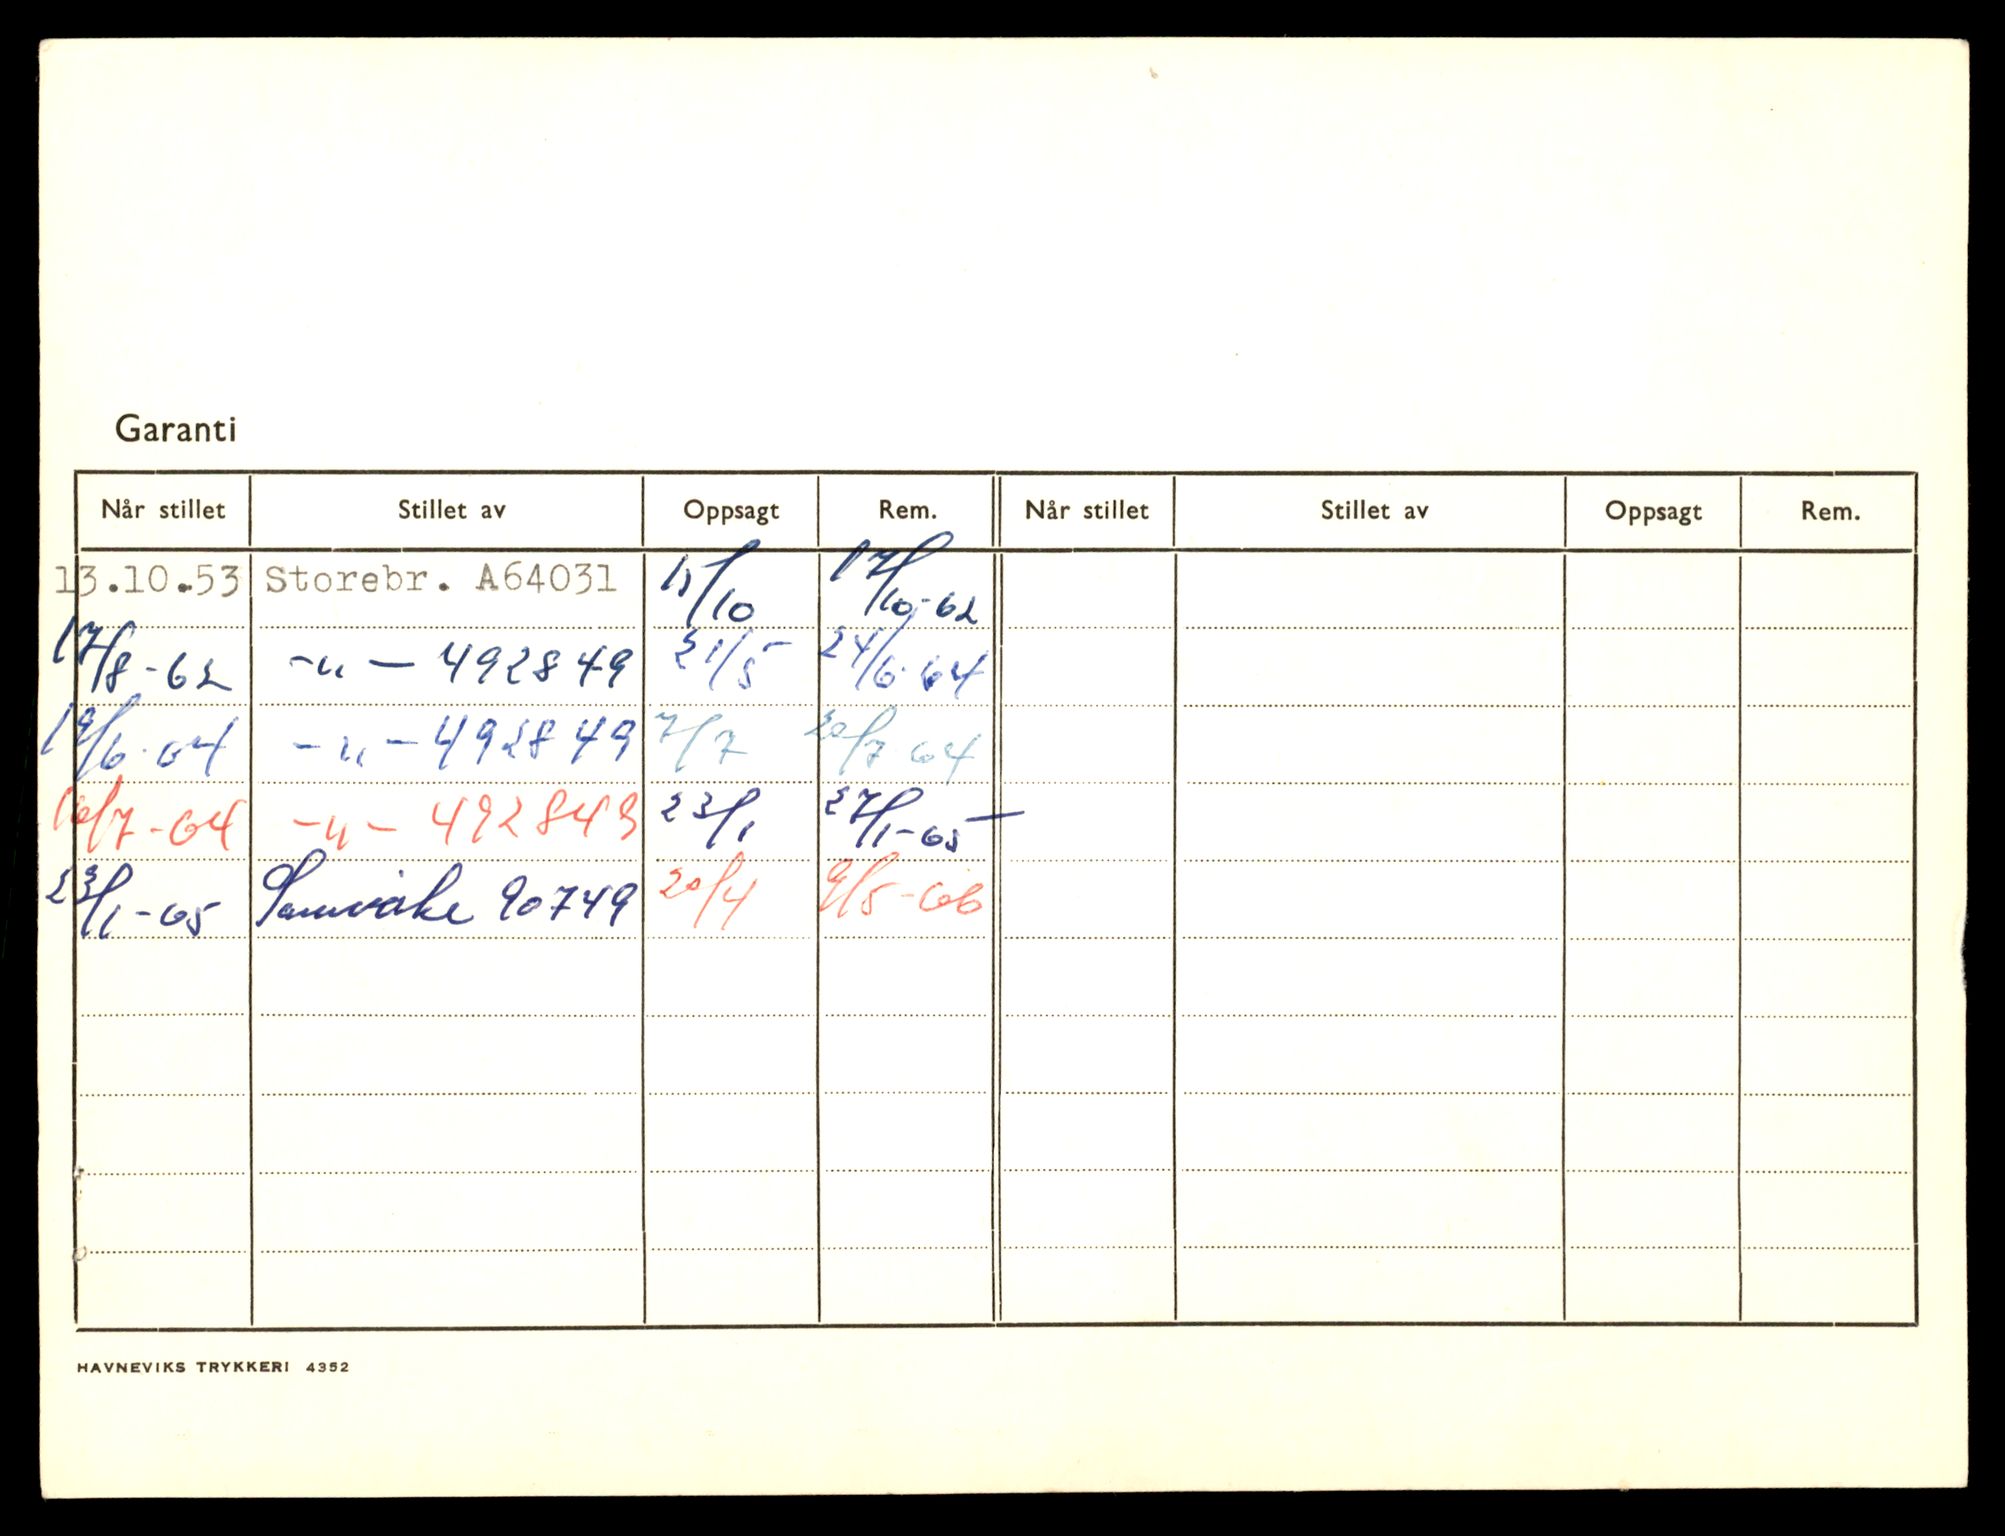 Garanti
Når stillet Stillet av Oppsagt Rem. Når stillet Stillet av Oppsagt Rem.
13.10.53 Storebr. A64031 15/10 17/10-62
17/8-62 -"- 492849 21/5 24/6-64
19/6-64 -"- 492849 7/7 20/7-64
16/7-64 -"- 492849 23/1 27/1-65
23/1-65 Samvirke 90749 20/4 9/5-66
HAVNEVIKS TRYKKERI 4352